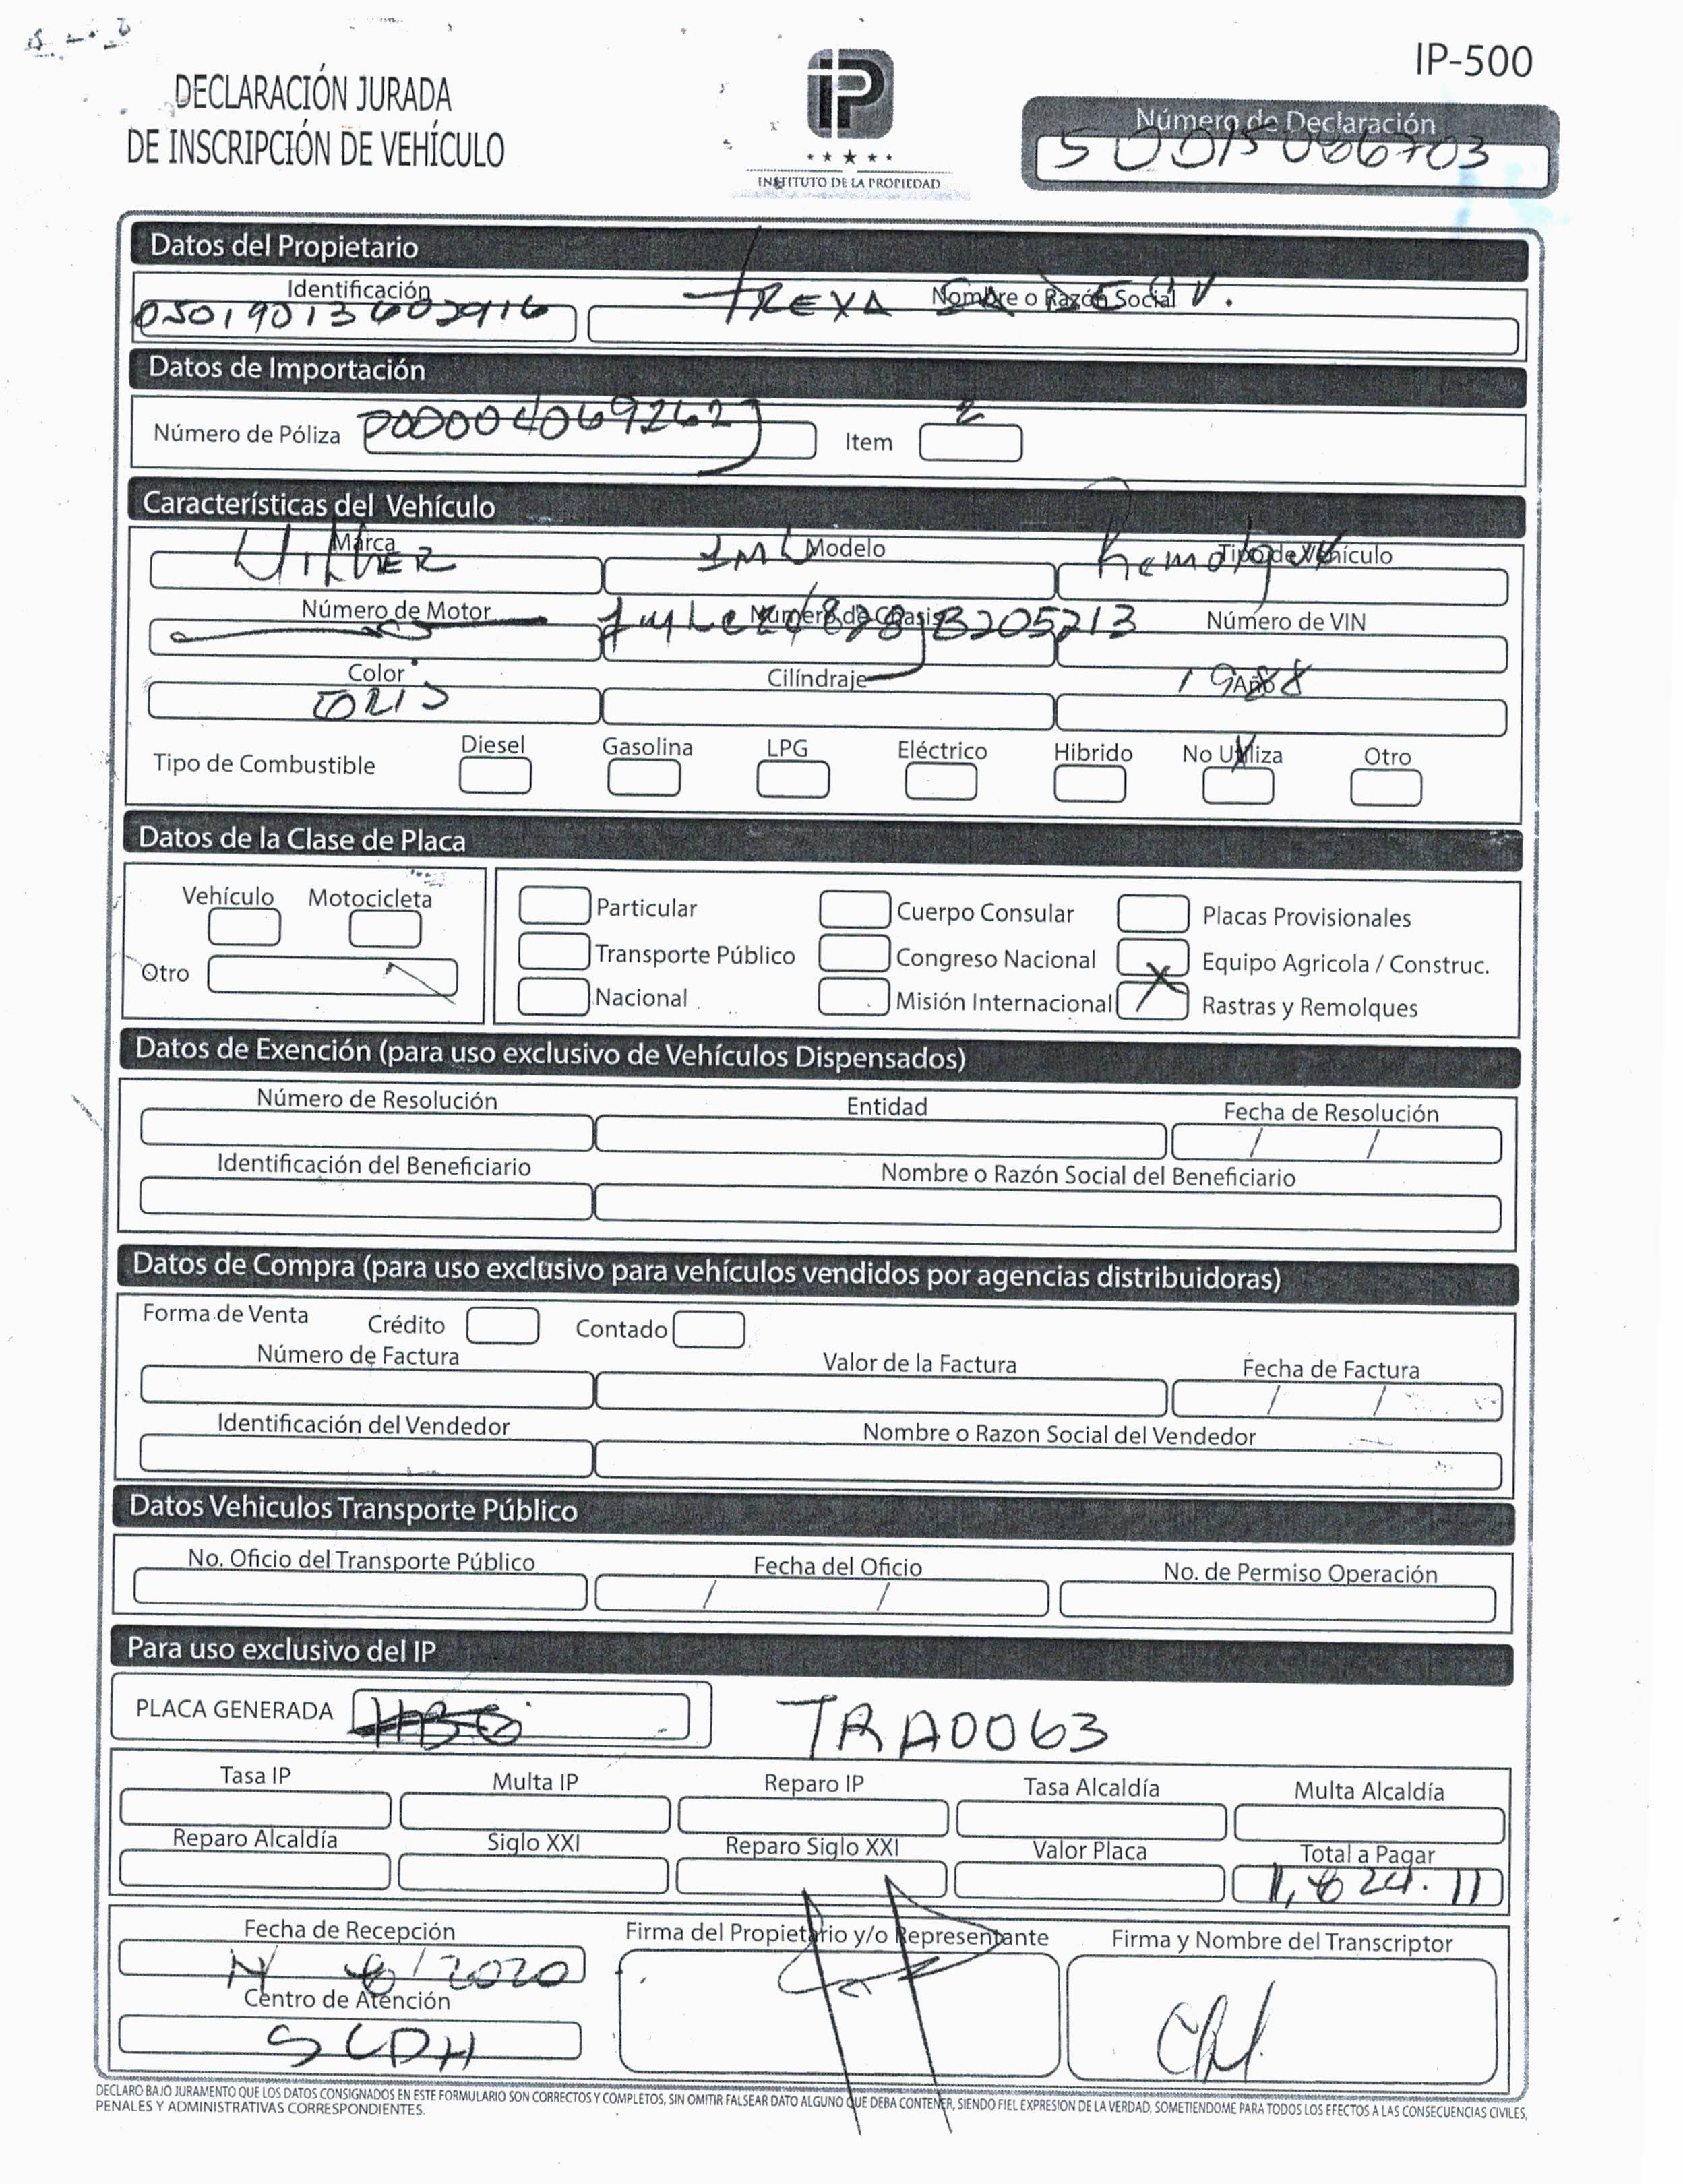 IP-500
DECLARACIÓN JURADA
DE INSCRIPCIÓN DE VEHÍCULO
iP
INSTITUTO DE LA PROPIEDAD
Número de Declaración
50015066703
Datos del Propietario
Identificación
Nombre o Razón Social
TREXA SA DE C.V.
Datos de Importación
Número de Póliza
Item 2
Características del Vehículo
Marca Modelo Tipo de Vehículo
Remolque
Número de Motor Número de Chasis Número de VIN
Color Cilíndraje Año
GRIS 1988
Tipo de Combustible Diesel Gasolina LPG Eléctrico Hibrido No Utiliza X Otro
Datos de la Clase de Placa
Vehículo Motocicleta
Otro
Particular Cuerpo Consular Placas Provisionales
Transporte Público Congreso Nacional Equipo Agricola / Construc.
Nacional Misión Internacional X Rastras y Remolques
Datos de Exención (para uso exclusivo de Vehículos Dispensados)
Número de Resolución Entidad Fecha de Resolución
/ /
Identificación del Beneficiario Nombre o Razón Social del Beneficiario
Datos de Compra (para uso exclusivo para vehículos vendidos por agencias distribuidoras)
Forma de Venta Crédito Contado
Número de Factura Valor de la Factura Fecha de Factura
/ /
Identificación del Vendedor Nombre o Razon Social del Vendedor
Datos Vehiculos Transporte Público
No. Oficio del Transporte Público Fecha del Oficio No. de Permiso Operación
/ /
Para uso exclusivo del IP
PLACA GENERADA TRA0063
Tasa IP Multa IP Reparo IP Tasa Alcaldía Multa Alcaldía
Reparo Alcaldía Siglo XXI Reparo Siglo XXI Valor Placa Total a Pagar
Fecha de Recepción Firma del Propietario y/o Representante Firma y Nombre del Transcriptor
/2020
Centro de Atención
DECLARO BAJO JURAMENTO QUE LOS DATOS CONSIGNADOS EN ESTE FORMULARIO SON CORRECTOS Y COMPLETOS, SIN OMITIR FALSEAR DATO ALGUNO QUE DEBA CONTENER, SIENDO FIEL EXPRESION DE LA VERDAD, SOMETIENDOME PARA TODOS LOS EFECTOS A LAS CONSECUENCIAS CIVILES,
PENALES Y ADMINISTRATIVAS CORRESPONDIENTES.